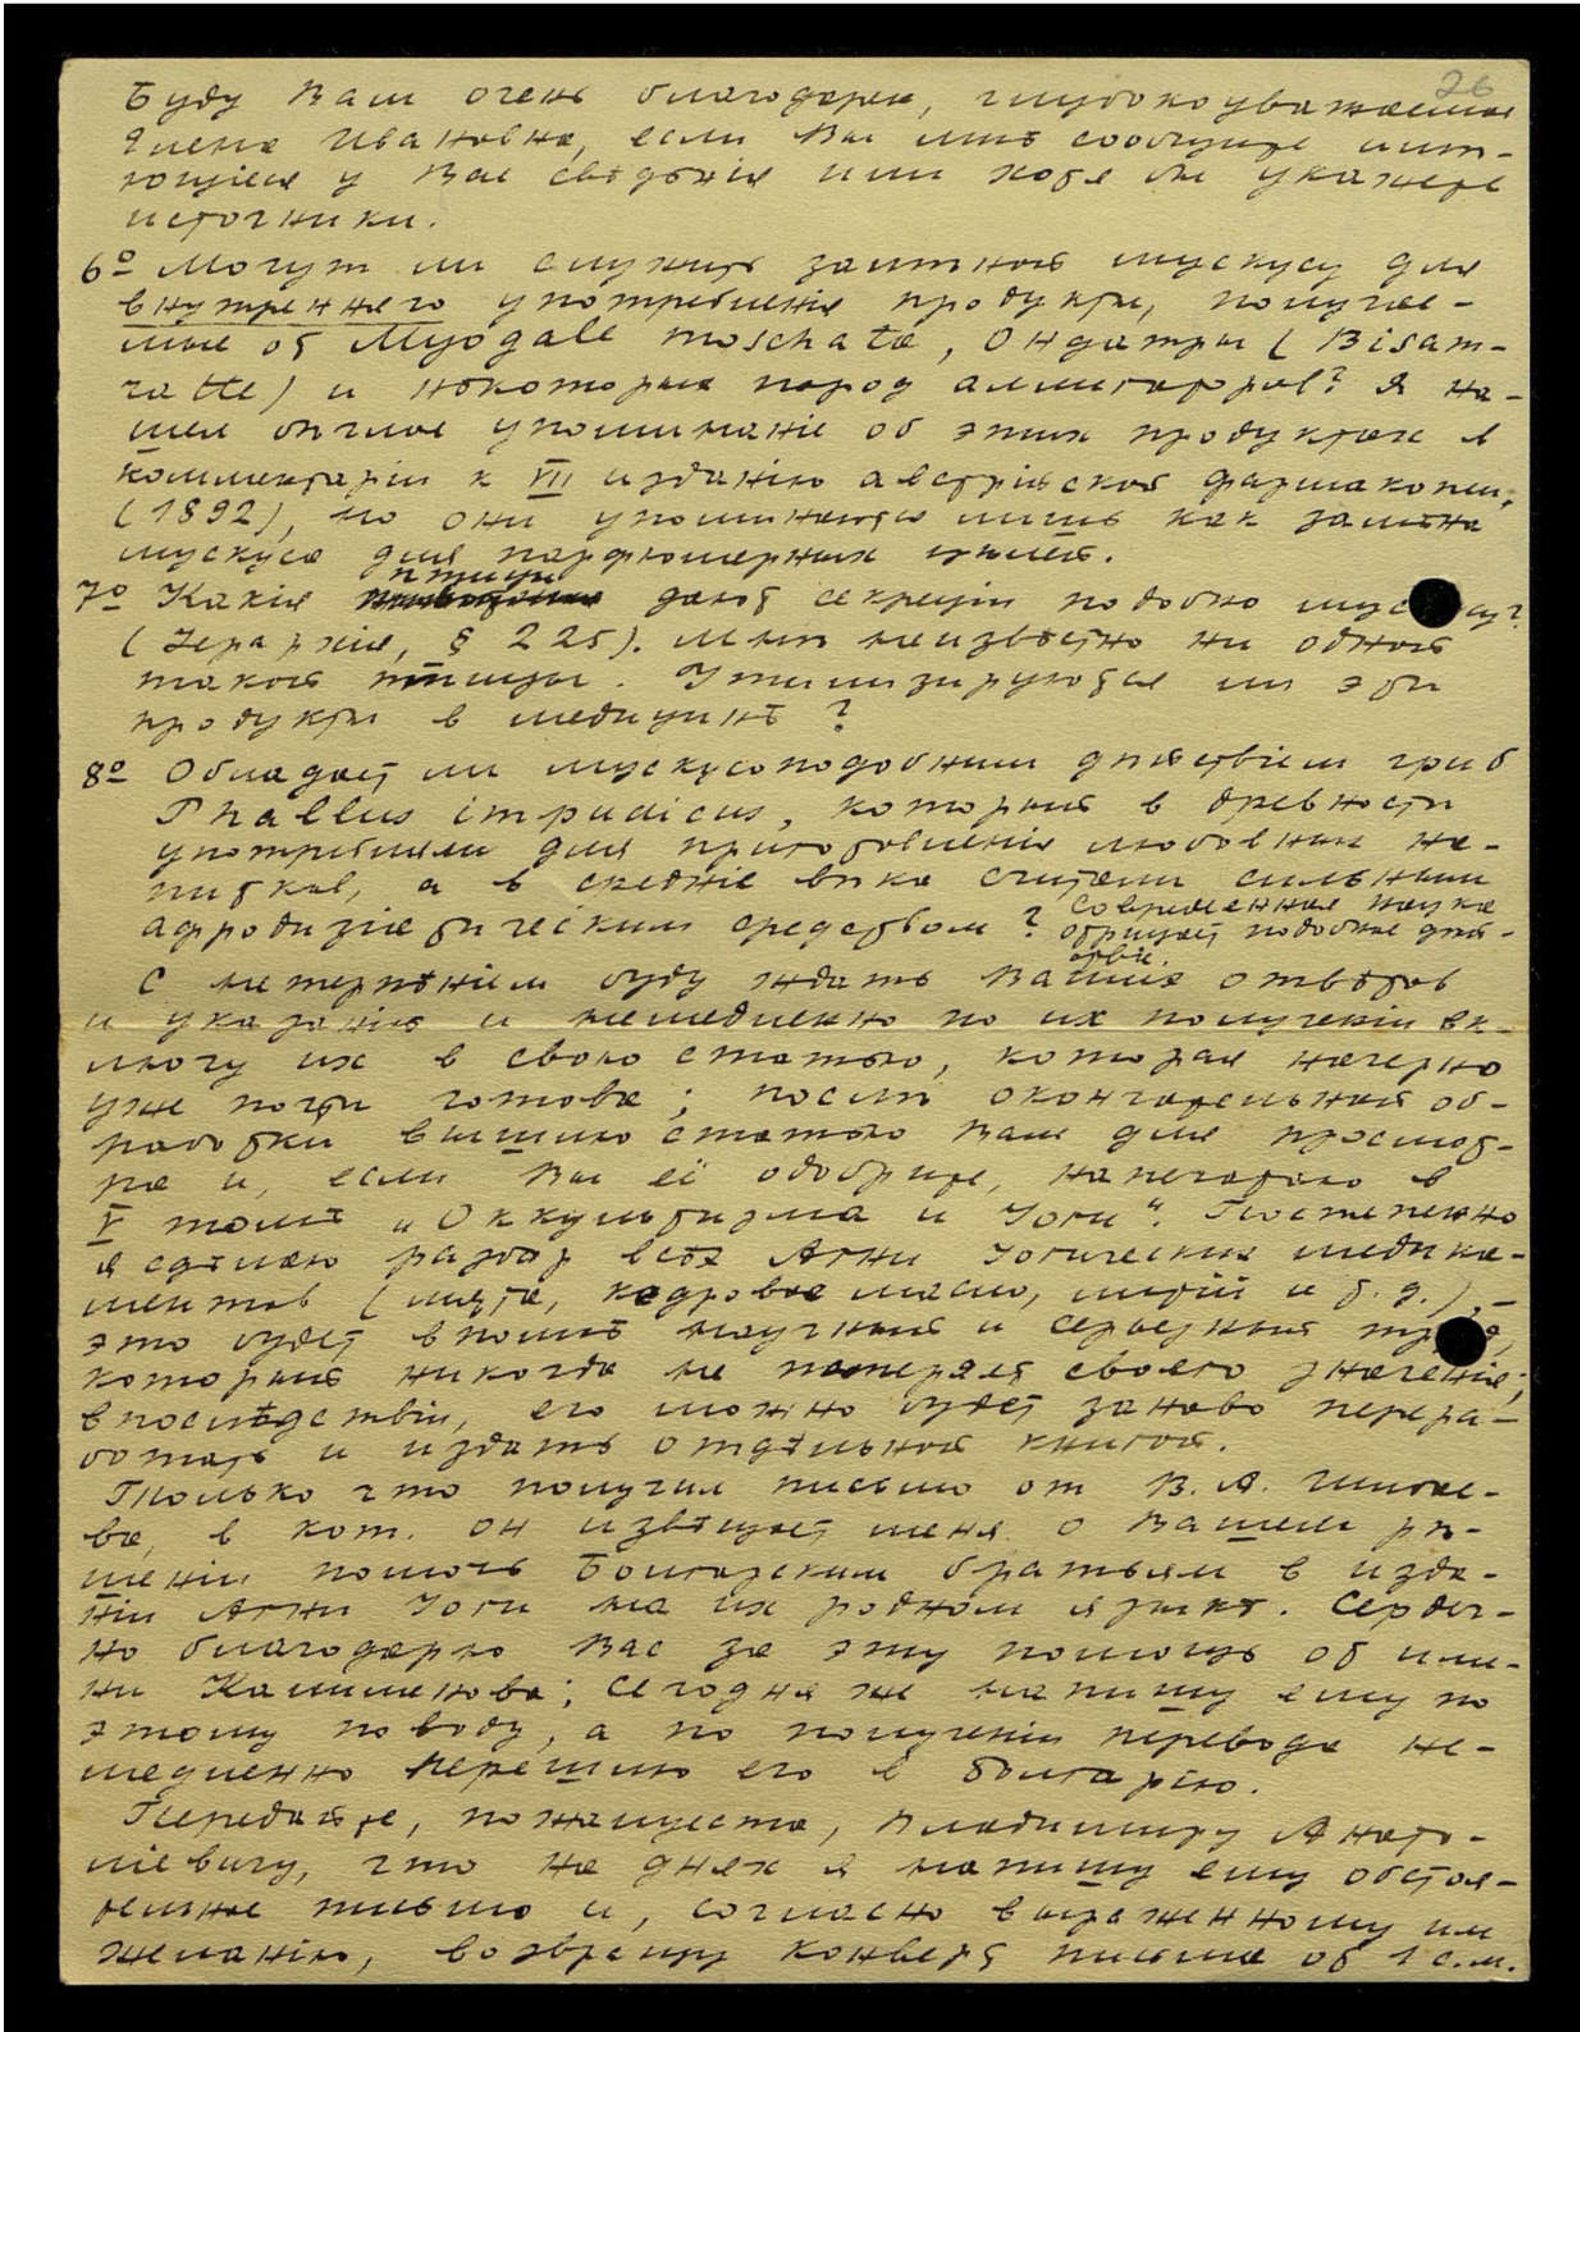 26
Буду Вам очень благодарен, глубокоуважаемая
Елена Ивановна, если Вы мнѣ сообщите имѣ-
ющіеся у Вас свѣдѣнія или хотя бы укажете
источники.
6º Могут ли служить замѣной мускусу для
внутренняго употребленія продукты, получае-
мые от Myogale moschata, Ондатры (Bisam-
ratte) и нѣкоторых пород аллигаторов? Я на-
шел бѣглое упоминаніе об этих продуктах в
комментаріи к VII изданію австрійской фармакопеи,
(1892), но они упоминаются лишь как замѣна
мускуса для парфюмерных цѣлей.
7º Какія птицы дают секреціи подобно мускусу?
(Іерархія, § 225). Мнѣ неизвѣстно ни одной
такой птицы. Утилизируются ли эти
продукты в медицинѣ?
8º Обладает ли мускусоподобным дѣйствіем гриб
Phallus impudicus, который в древности
употребляли для приготовленія любовных на-
питков, а в средніе вѣка считали сильным
афродизіастическим средством? Современная наука
отрицает подобное дѣй-
ствіе.
С нетерпѣніем буду ждать Ваших отвѣтов
и указаній и немедленно по их полученіи вк-
лючу их в свою статью, которая начерно
уже почти готова; послѣ окончательной об-
работки вышлю статью Вам для просмот-
ра и, если Вы её одобрите, напечатаю в
V томѣ „Оккультизма и Йоги“. Постепенно
я сдѣлаю разбор всѣх Агни Йогических медика-
ментов (мята, кедровое масло, литій и т. д.), –
это будет вполнѣ научный и серьезный труд,
который никогда не потеряет своего значенія;
впослѣдствіи, его можно будет заново перера-
ботать и издать отдѣльной книгой.
Только что получил письмо от В. А. Шибае-
ва, в кот. он извѣщает меня о Вашем рѣ-
шеніи помочь Болгарским братьям в изда-
ніи Агни Йоги на их родном языкѣ. Сердеч-
но благодарю Вас за эту помощь от име-
ни Калименова; сегодня же напишу ему по
этому поводу, а по полученіи перевода не-
медленно перешлю его в Болгарію.
Передайте, пожалуйста, Владимиру Анато-
ліевичу, что на днях я напишу ему обстоя-
тельное письмо и, согласно выраженному им
желанію, возвращу конверт письма от 1 с.м.